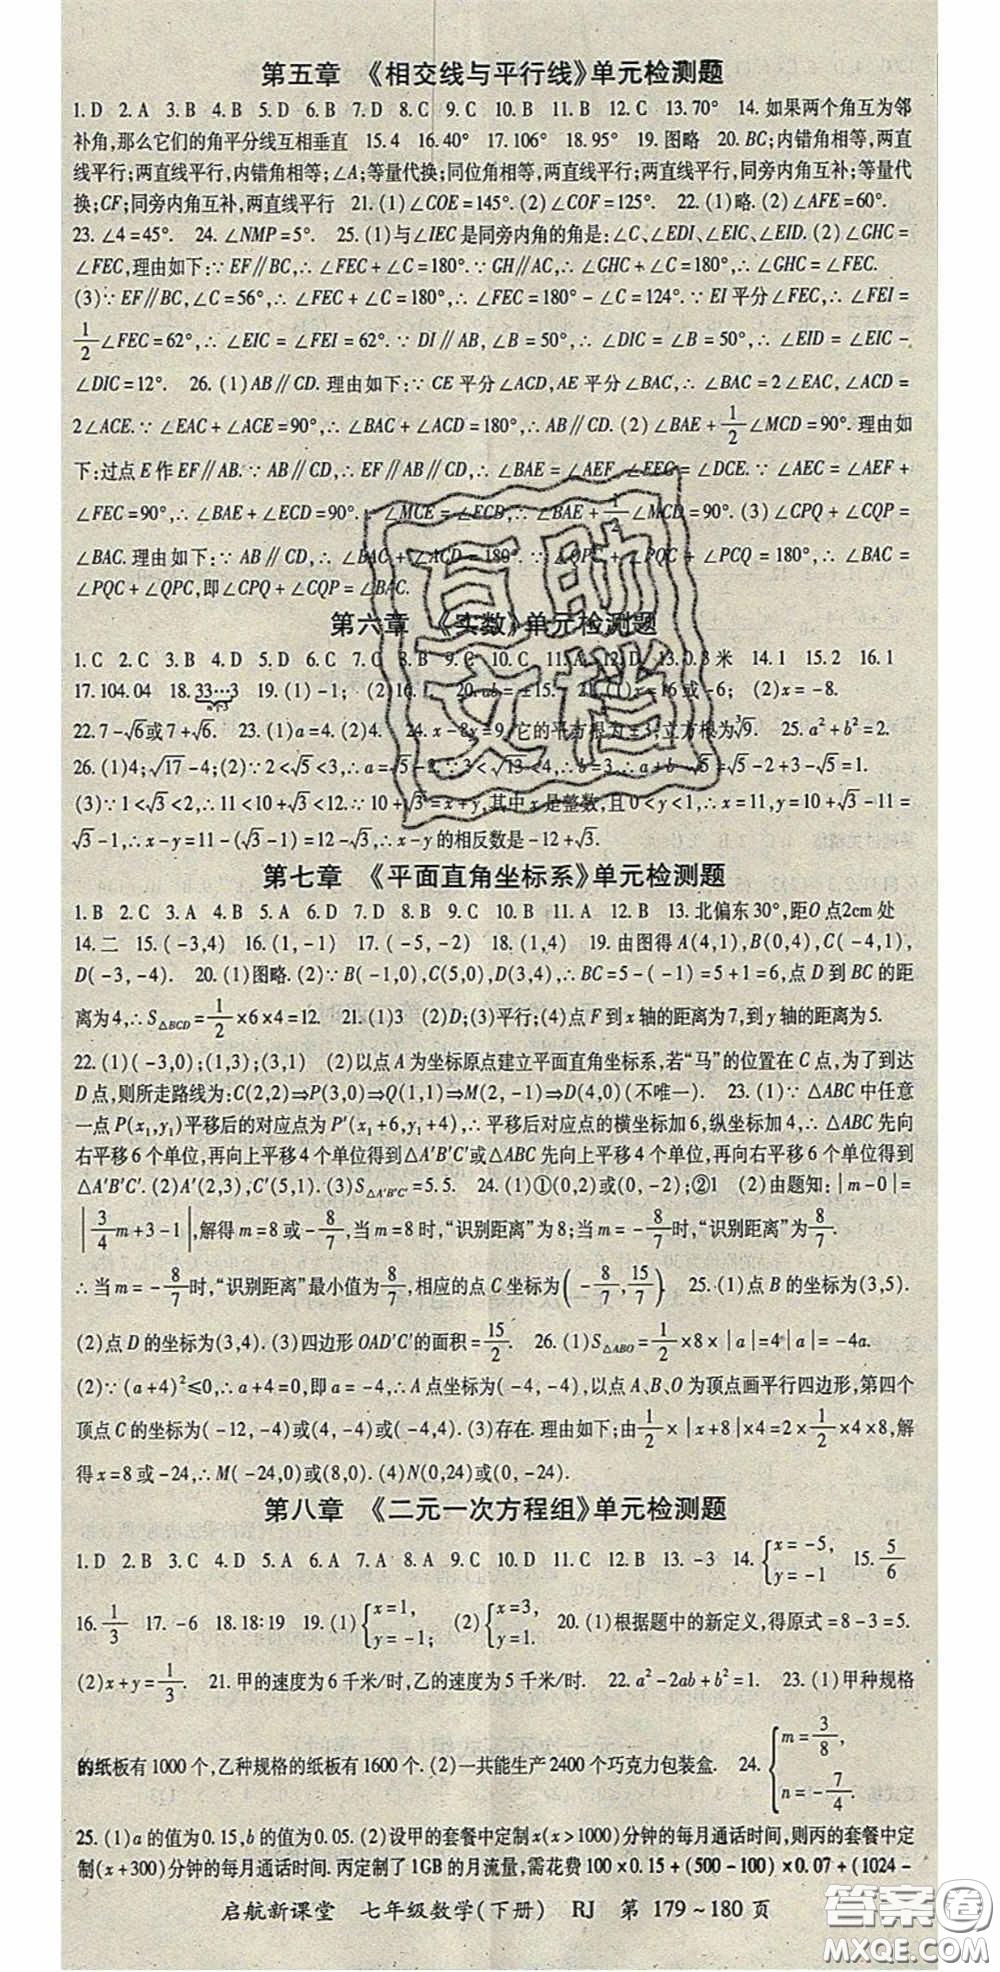 第五章 《相交线与平行线》单元检测题
1.D 2.A 3.B 4.B 5.D 6.B 7.D 8.C 9.C 10.B 11.B 12.C 13.70° 14.如果两个角互为邻
补角,那么它们的角平分线互相垂直 15.4 16.40° 17.106° 18.95° 19.图略 20.BC;内错角相等,两直
线平行;两直线平行,内错角相等;∠A;等量代换;同位角相等,两直线平行;两直线平行,同旁内角互补;等量代
换;CF;同旁内角互补,两直线平行 21.(1)∠COE=145°.(2)∠COF=125°. 22.(1)略.(2)∠AFE=60°.
23.∠4=45°. 24.∠NMP=5°. 25.(1)与∠IEC是同旁内角的角是:∠C、∠EDI、∠EIC、∠EID.(2)∠GHC=
∠FEC,理由如下:∵EF∥BC,∴∠FEC+∠C=180°.∵GH∥AC,∴∠GHC+∠C=180°,∴∠GHC=∠FEC.
(3)∵EF∥BC,∠C=56°,∴∠FEC+∠C=180°,∴∠FEC=180°-∠C=124°.∵EI平分∠FEC,∴∠FEI=
1/2∠FEC=62°,∴∠EIC=∠FEI=62°.∵DI∥AB,∠B=50°,∴∠DIC=∠B=50°,∴∠EID=∠EIC-
∠DIC=12°. 26.(1)AB∥CD.理由如下:∵CE平分∠ACD,AE平分∠BAC,∴∠BAC=2∠EAC,∠ACD=
2∠ACE.∵∠EAC+∠ACE=90°,∴∠BAC+∠ACD=180°,∴AB∥CD.(2)∠BAE+1/2∠MCD=90°.理由如
下:过点E作EF∥AB.∵AB∥CD,∴EF∥AB∥CD,∴∠BAE=∠AEF,∠FEC=∠DCE.∵∠AEC=∠AEF+
∠FEC=90°,∴∠BAE+∠ECD=90°.∵∠MCE=∠ECD,∴∠BAE+1/2∠MCD=90°.(3)∠CPQ+∠CQP=
∠BAC.理由如下:∵AB∥CD,∴∠BAC+∠ACD=180°.∵∠QPC+∠PQC+∠PCQ=180°,∴∠BAC=
∠PQC+∠QPC,即∠CPQ+∠CQP=∠BAC.
第六章 《实数》单元检测题
1.C 2.C 3.B 4.D 5.D 6.C 7.C 8.B 9.C 10.C 11.A 12.D 13.0.3米 14.1 15.2 16.1
17.104.04 18.33…3 19.(1)-1; (2)16.1. 20.ab=±15. 21.(1)x=16或-6; (2)x=-8.
22.7-√6或7+√6. 23.(1)a=4.(2)4. 24.x-8y=9,它的平方根为±3,立方根为∛9. 25.a²+b²=2.
26.(1)4;√17-4;(2)∵2<√5<3,∴a=√5-2.∵3<√13<4,∴b=3.∴a+b-√5=√5-2+3-√5=1.
(3)∵1<√3<2,∴11<10+√3<12.∵10+√3=x+y,其中x是整数,且0<y<1,∴x=11,y=10+√3-11=
√3-1,∴x-y=11-(√3-1)=12-√3,∴x-y的相反数是-12+√3.
第七章 《平面直角坐标系》单元检测题
1.B 2.C 3.D 4.B 5.A 6.D 7.D 8.B 9.C 10.B 11.A 12.B 13.北偏东30°,距O点2cm处
14.二 15.(-3,4) 16.(1,-1) 17.(-5,-2) 18.(1,4) 19.由图得A(4,1),B(0,4),C(-4,1),
D(-3,-4). 20.(1)图略.(2)∵B(-1,0),C(5,0),D(3,4),∴BC=5-(-1)=5+1=6,点D到BC的距
离为4,∴S△BCD=1/2×6×4=12. 21.(1)3 (2)D;(3)平行;(4)点F到x轴的距离为7,到y轴的距离为5.
22.(1)(-3,0);(1,3);(3,1) (2)以点A为坐标原点建立平面直角坐标系,若“马”的位置在C点,为了到达
D点,则所走路线为:C(2,2)⇒P(3,0)⇒Q(1,-1)⇒M(2,-1)⇒D(4,0)(不唯一). 23.(1)∵△ABC中任意
一点P(x₁,y₁)平移后的对应点为P′(x₁+6,y₁+4),∴平移后对应点的横坐标加6,纵坐标加4,∴△ABC先向
右平移6个单位,再向上平移4个单位得到△A′B′C′或△ABC先向上平移4个单位,再向右平移6个单位得到
△A′B′C′.(2)A′(2,3),C′(5,1).(3)S△A′B′C′=5.5. 24.(1)①(0,2)或(0,-2);②1 (2)由题知:|m-0|=
|3/4m+3-1|,解得m=8或-8/7,当m=8时,“识别距离”为8;当m=-8/7时,“识别距离”为8/7.
∴当m=-8/7时,“识别距离”最小值为8/7,相应的点C坐标为(-8/7,15/7). 25.(1)点B的坐标为(3,5).
(2)点D的坐标为(3,4).(3)四边形OAD′C′的面积=15/2. 26.(1)S△ABO=1/2×8×|a|=4|a|=-4a.
(2)∵(a+4)²≤0,∴a+4=0,即a=-4,∴A点坐标为(-4,-4),以点A、B、O为顶点画平行四边形,第四个
顶点C的坐标为(-12,-4)或(4,-4)或(-4,4).(3)存在.理由如下:由1/2×|x+8|×4=2×1/2×4×8,解
得x=8或-24,∴M(-24,0)或(8,0).(4)N(0,24)或(0,-24).
第八章 《二元一次方程组》单元检测题
1.D 2.B 3.C 4.D 5.A 6.A 7.B 8.A 9.C 10.D 11.C 12.B 13.-3 14.{x=-5, y=-1 15.5/6
16.1/3 17.-6 18.18:19 19.(1){x=1, y=-1; (2){x=3, y=1. 20.(1)根据题中的新定义,得原式=8-3=5.
(2)x+y=1/3. 21.甲的速度为6千米/时,乙的速度为5千米/时. 22.a²-2ab+b²=1. 23.(1)甲种规格
的纸板有1000个,乙种规格的纸板有1600个.(2)一共能生产2400个巧克力包装盒. 24.{m=3/8, n=-7/4.
25.(1)a的值为0.15,b的值为0.05.(2)设甲的套餐中定制x(x>1000)分钟的每月通话时间,则丙的套餐中定
制(x+300)分钟的每月通话时间.丙定制了1GB的月流量,需花费100×0.15+(500-100)×0.07+(1024-
启航新课堂 七年级数学(下册) RJ 第179~180页
百助文档
答案圈
MXQE.COM